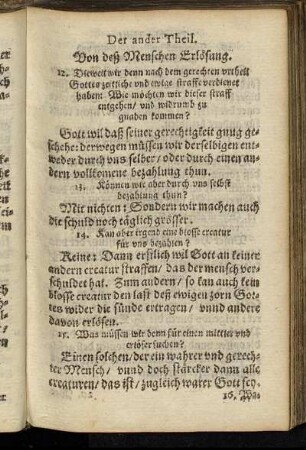 Der ander Theil.
Von deß Menschen Erlösung.
12. Dieweil wir denn nach dem gerechten vrtheil
Gottes zeitliche vnd ewige straffe verdienet
haben: Wie möchten wir dieser straff
entgehen / vnd widrumb zu
gnaden kommen?
Gott wil daß seiner gerechtigkeit gnug ge-
schehe: derwegen müssen wir derselbigen ent-
weder durch vns selber / oder durch einen an-
dern vollkomene bezahlung thun.
13. Können wir aber durch vns selbst
bezahlung thun?
Mit nichten: Sondren wir machen auch
die schuld noch täglich grösser.
14. Kan aber irgend eine blosse creatur
für vns bezahlen?
Keine: Dann erstlich wil Gott an keiner
andern creatur straffen / das der mensch ver-
schuldet hat. Zum andern / so kan auch kein
blosse creatur den last deß ewigen zorn Got-
tes wider die sünde ertragen / vnnd andere
davon erlösen.
15. Was müssen wir denn für einen mittler vnd
erlöser suchen?
Einen solchen / der ein wahrer vnd gerech-
ter Mensch / vnnd doch stärcker dann alle
creaturen / das ist / zugleich warer Gott sey.
16. Wa-